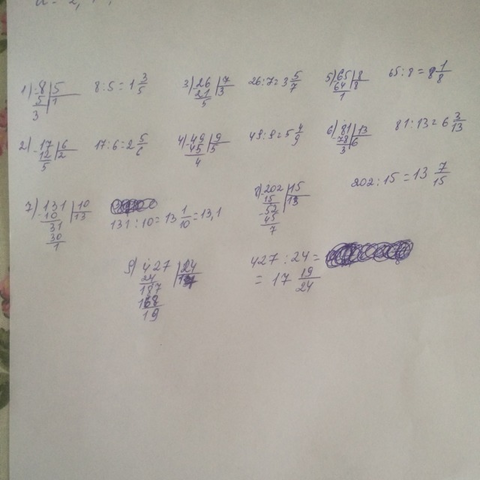 1) 8 | 5
5 | 1
3
8:5=1 3/5
3) 26 | 7
21 | 3
5
26:7=3 5/7
5) 65 | 8
64 | 8
1
65:8=8 1/8
2) 17 | 6
12 | 2
5
17:6=2 5/6
4) 49 | 9
45 | 5
4
49:9=5 4/9
6) 81 | 13
78 | 6
3
81:13=6 3/13
7) 131 | 10
10 | 13
31
30
1
131:10=13 1/10=13,1
8) 202 | 15
15 | 13
52
45
7
202:15=13 7/15
9) 427 | 24
24 | 17
187
168
19
427:24=
=17 19/24